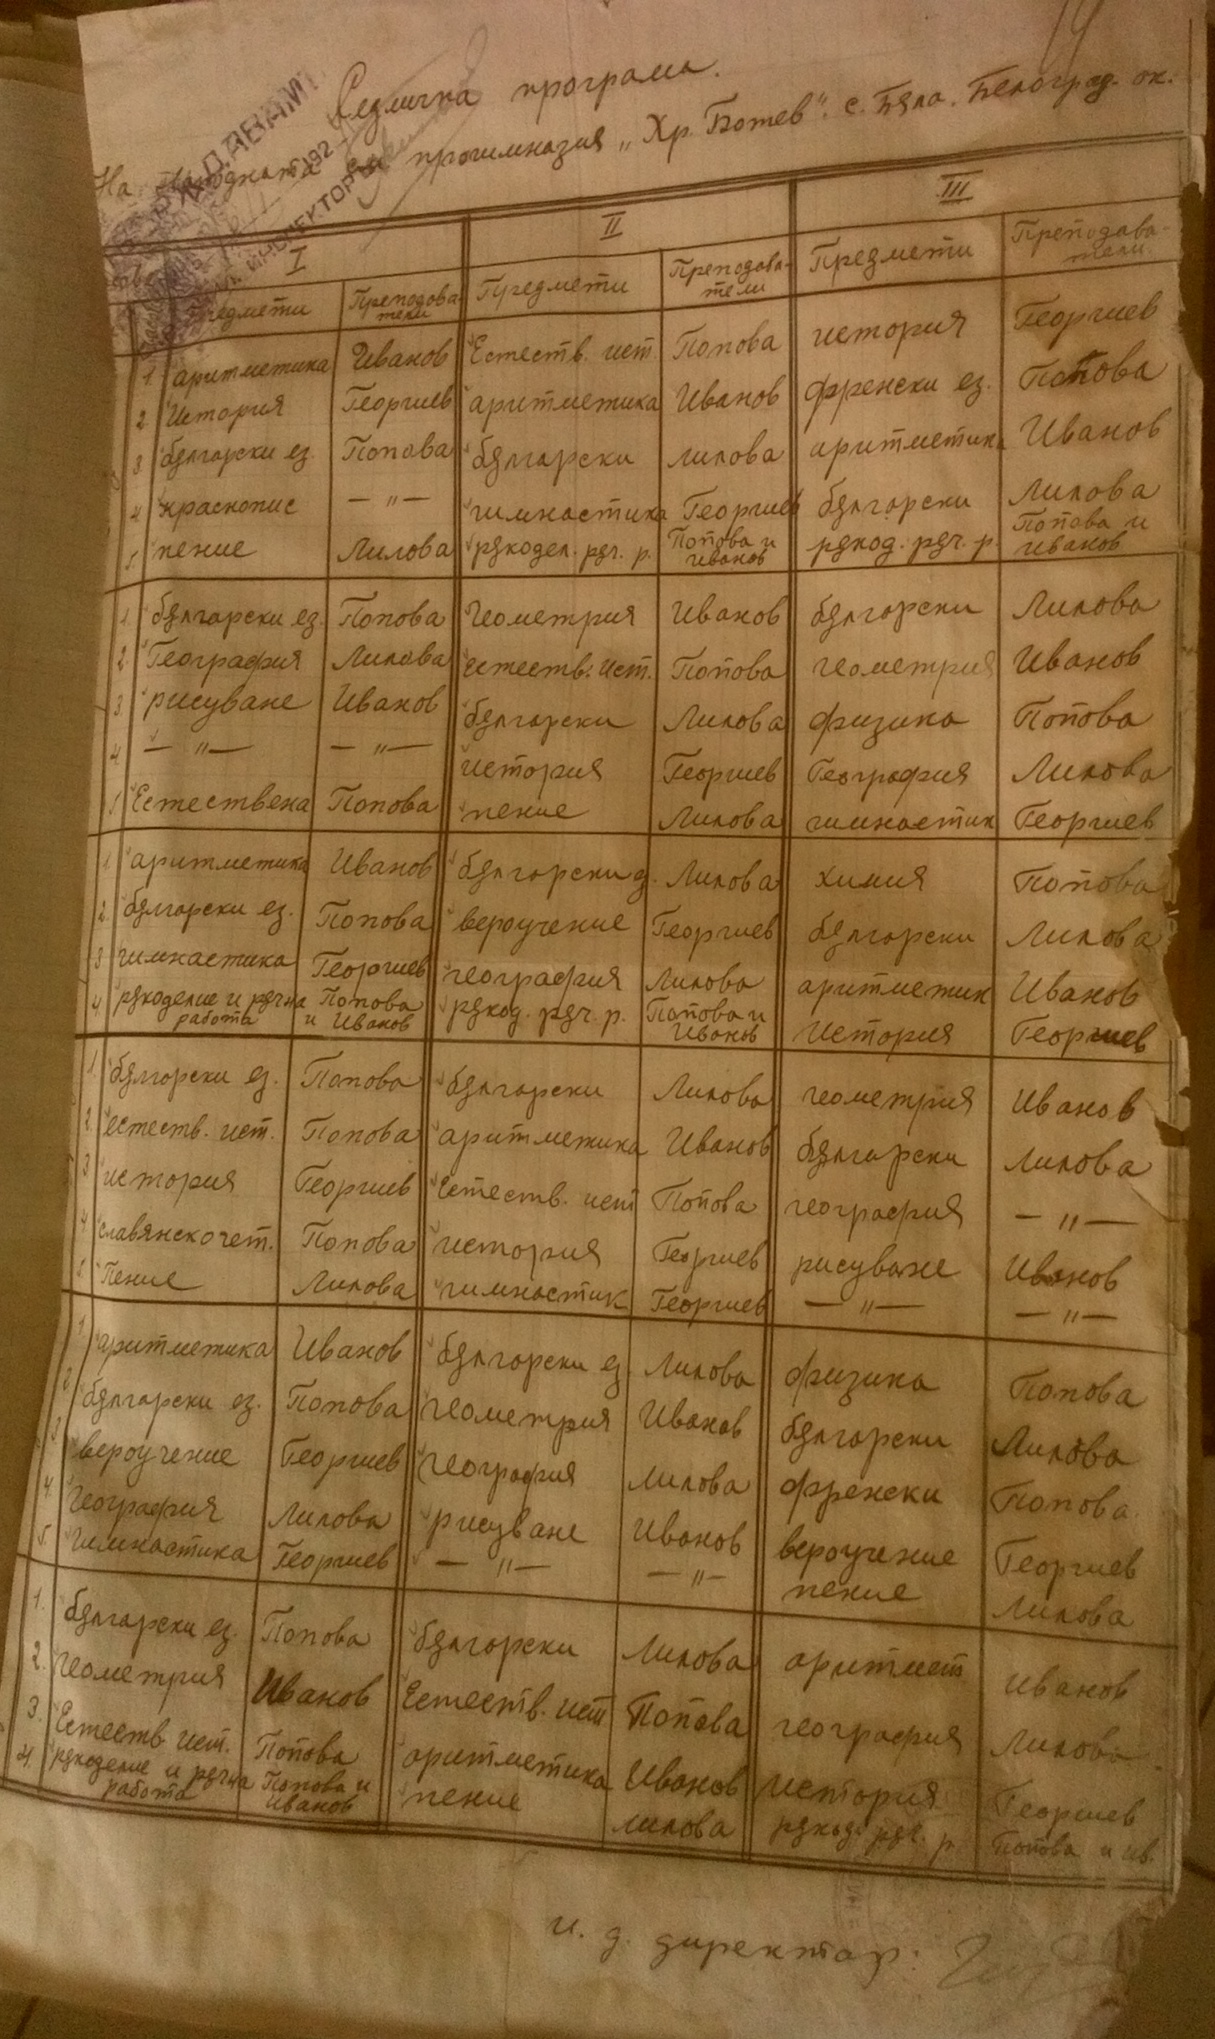 Седмична програма.
На народната прогимназия „Хр. Ботев" с. Бѫла. Белоград. ок.
УТВЪРЖДАВАМ
192
ИНСПЕКТОР
I II III
Предмети Преподаватели Предмети Преподаватели Предмети Преподаватели
1. аритметика Иванов Естеств. ист. Попова история Георгиев
2 История Георгиев аритметика Иванов френски ез. Попова
3 бѫлгарски ез. Попова бѫлгарски Лилова аритметика Иванов
4 краснопис — " — гимнастика Георгиев бѫлгарски Лилова
5. пение Лилова рѫкодел. рѫч. р. Попова и Иванов рѫкод. рѫч. р. Попова и Иванов
1. бѫлгарски ез. Попова Геометрия Иванов бѫлгарски Лилова
2. География Лилова естеств. ист. Попова геометрия Иванов
3 рисуване Иванов бѫлгарски Лилова физика Попова
4. — " — — " — история Георгиев География Лилова
5 Естествена Попова пение Лилова гимнастик Георгиев
1. аритметика Иванов бѫлгарски Лилова химия Попова
2. бѫлгарски ез. Попова вероучение Георгиев бѫлгарски Лилова
3 гимнастика Георгиев география Лилова аритметик Иванов
4. рѫкоделие и рѫчна работа Попова и Иванов рѫкод. рѫч. р. Попова и Иванов История Георгиев
1. бѫлгарски ез. Попова бѫлгарски Лилова геометрия Иванов
2. естеств. ист. Попова аритметика Иванов бѫлгарски Лилова
3 история Георгиев Естеств. ист Попова география — " —
4 славянско чет. Попова история Георгиев рисуване Иванов
5. Пение Лилова гимнастик Георгиев — " — — " —
1 аритметика Иванов бѫлгарски ез Лилова физика Попова
2 бѫлгарски ез. Попова геометрия Иванов бѫлгарски Лилова
3 вероучение Георгиев география Лилова френски Попова.
4. География Лилова рисуване Иванов вероучение Георгиев
5. Гимнастика Георгиев — " — — " — пение Лилова
1. бѫлгарски ез. Попова бѫлгарски Лилова аритмет Иванов
2. геометрия Иванов Естеств. ист Попова география Лилова
3. Естеств. ист. Попова аритметика Иванов История Георгиев
4. рѫкоделие и рѫчна работа Попова и Иванов пение Лилова рѫкод. рѫч. р Попова и Ив.
и. д. директор: